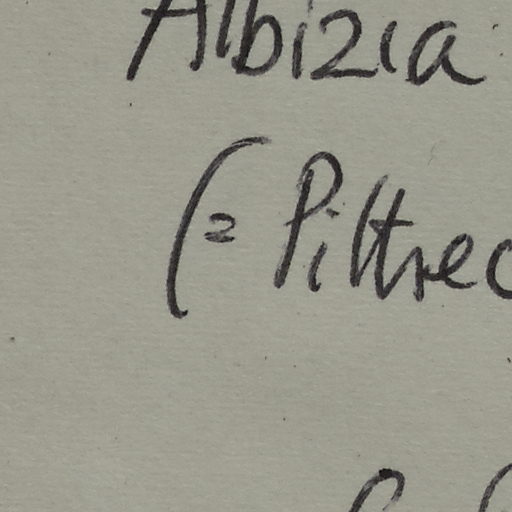 Albizia
(= Piltrec